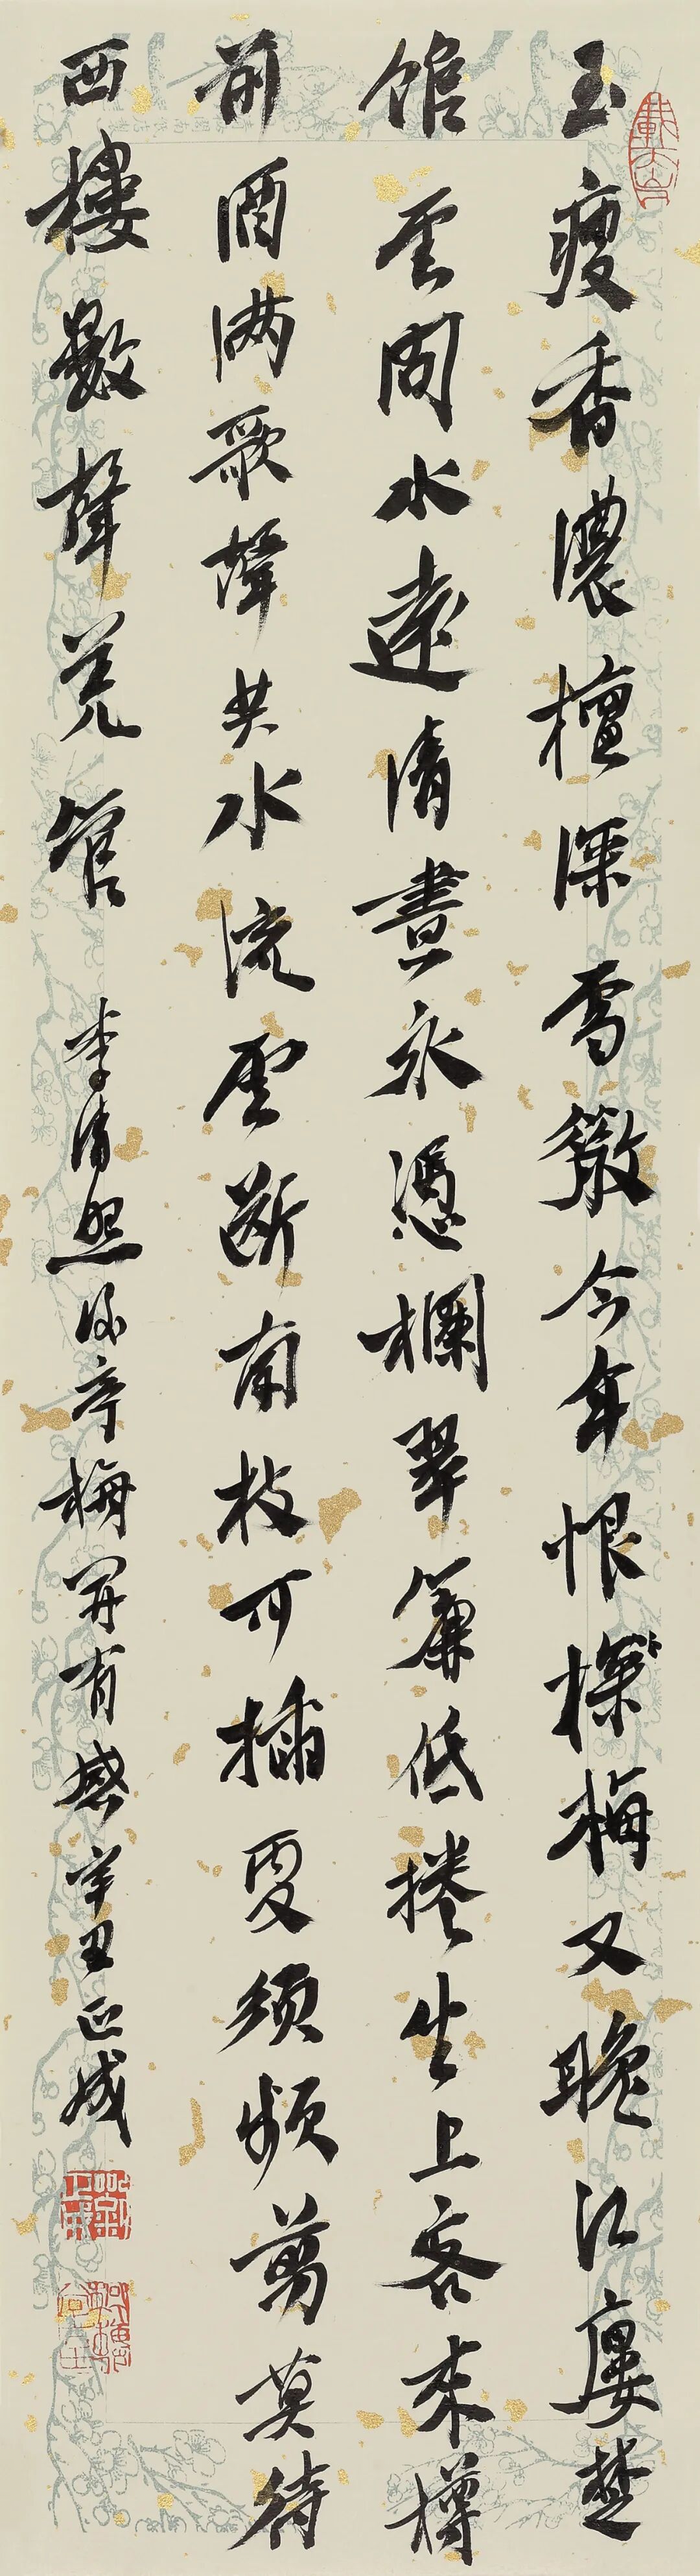 玉瘦香濃檀深雪散今年恨探梅又晚江廔楚
館云間水遠清晝永憑欄翠簾低捲坐上客來樽
前酒滿歌聲共水流雲斷南枝可插更須頻剪莫待
西樓數聲羌管 李清照後亭梅開有感辛丑正成